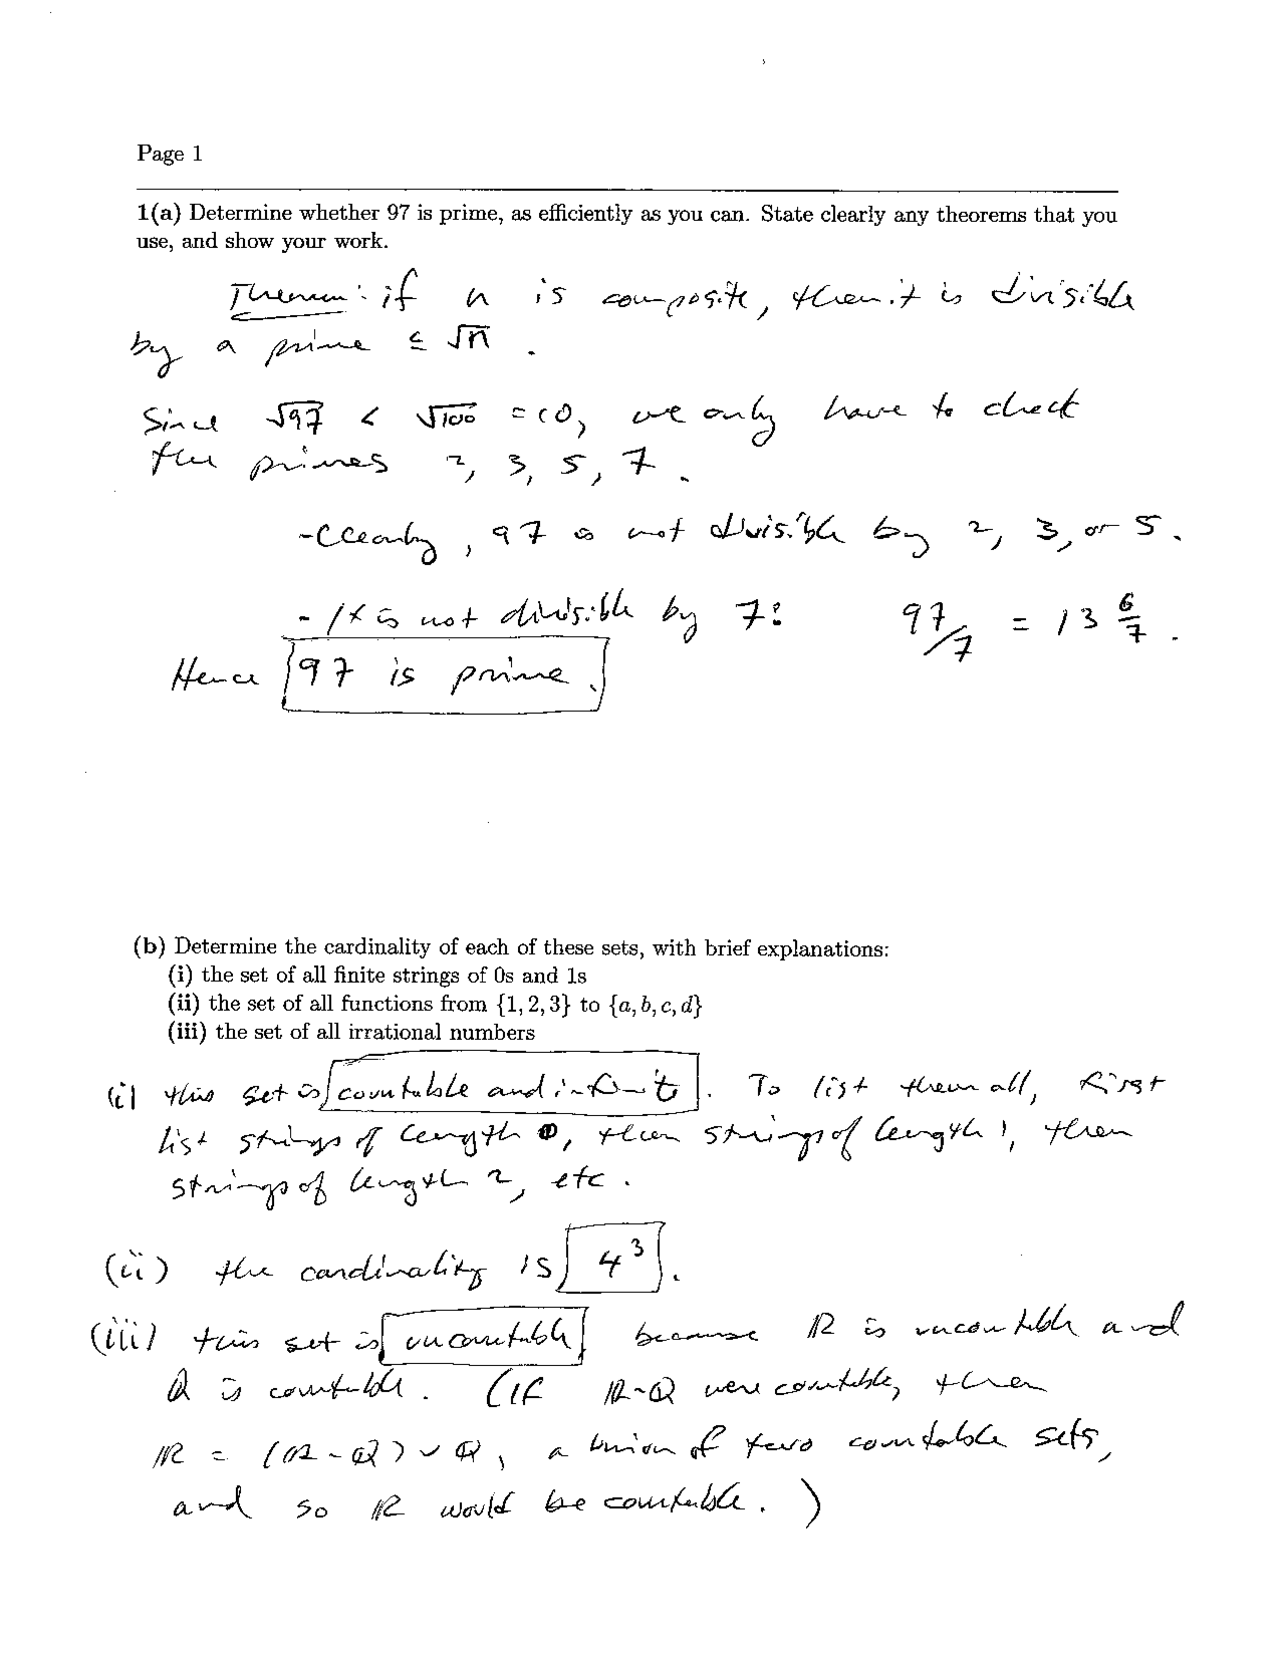 Page 1
1(a) Determine whether 97 is prime, as efficiently as you can. State clearly any theorems that you
use, and show your work.
Theorem: if n is composite, then it is divisible
by a prime ≤ √n .
Since √97 < √100 = 10, we only have to check
the primes 2, 3, 5, 7 .
- Clearly, 97 is not divisible by 2, 3, or 5 .
- It is not divisible by 7: 97/7 = 13 6/7 .
Hence 97 is prime.
(b) Determine the cardinality of each of these sets, with brief explanations:
(i) the set of all finite strings of 0s and 1s
(ii) the set of all functions from {1, 2, 3} to {a, b, c, d}
(iii) the set of all irrational numbers
(i) this set is countable and infinite . To list them all, first
list strings of length 0, then strings of length 1, then
strings of length 2, etc .
(ii) the cardinality is 4³ .
(iii) this set is uncountable because ℝ is uncountable and
ℚ is countable . (If ℝ-ℚ were countable, then
ℝ = (ℝ-ℚ) ∪ ℚ, a union of two countable sets,
and so ℝ would be countable . )